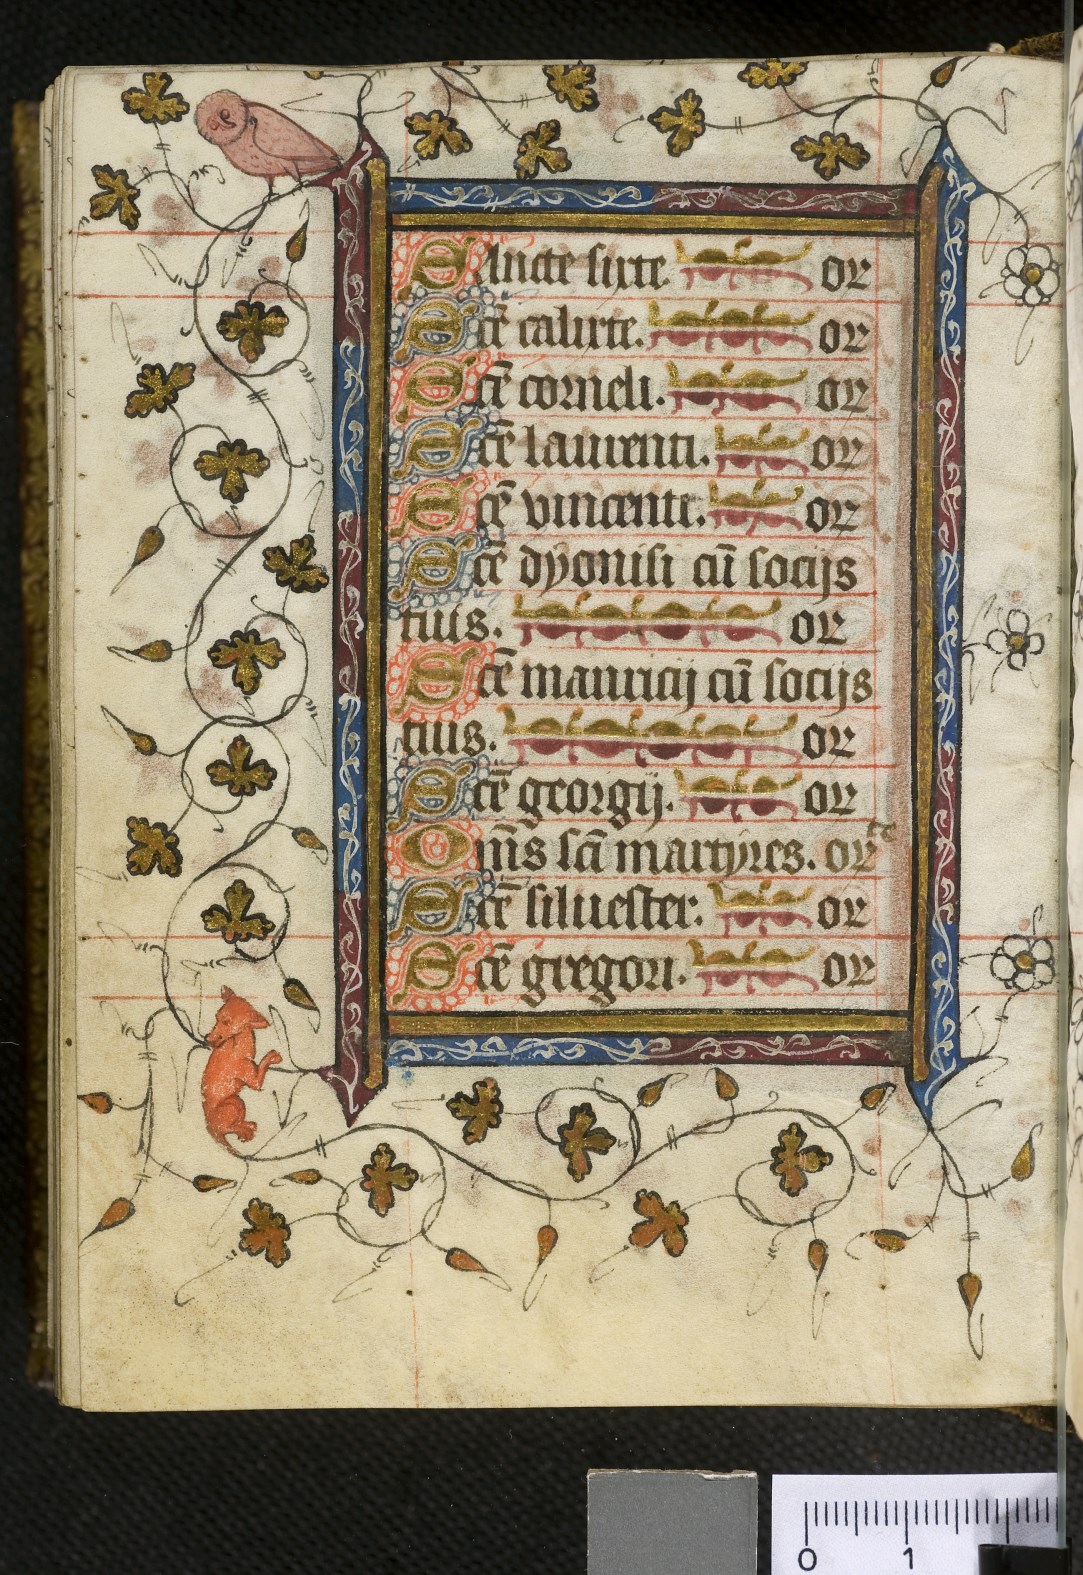 Sancte sixte. or
Scē calixte. or
Scē corneli. or
Scē laurenti. or
Scē vincenti. or
Scē dyonisi cū socijs
tuis. or
Scē mauricij cū socijs
tuis. or
Scē georgij. or
Om̄s scī martyres. orᵗᵉ
Scē siluester. or
Scē gregori. or
0 1